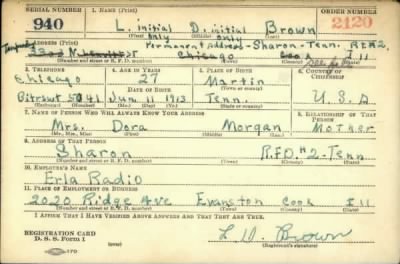 SERIAL NUMBER 1. NAME (Print) ORDER NUMBER
940 L. initial only D. initial only Brown 2120
(First) (Middle) (Last)
Permanent Address - Sharon - Tenn. RFD2.
2. ADDRESS (Print)
Chicago Cook Ill
(Number and street or R. F. D. number) (Town) (County) (State)
3. TELEPHONE 4. AGE IN YEARS 5. PLACE OF BIRTH 6. COUNTRY OF CITIZENSHIP
Chicago 27 Martin
DATE OF BIRTH
5041 Jun 11 1913 Tenn. U.S.A
(Exchange) (Number) (Mo.) (Day) (Yr.) (State or country)
7. NAME OF PERSON WHO WILL ALWAYS KNOW YOUR ADDRESS 8. RELATIONSHIP OF THAT PERSON
Mrs. Dora Morgan Mother
(Mr., Mrs., Miss) (First) (Middle) (Last)
9. ADDRESS OF THAT PERSON
Sharon R.F.D. #2-Tenn
(Number and street or R. F. D. number) (Town) (County) (State)
10. EMPLOYER'S NAME
Erla Radio
11. PLACE OF EMPLOYMENT OR BUSINESS
2020 Ridge Ave Evanston Cook Ill
(Number and street or R. F. D. number) (Town) (County) (State)
I AFFIRM THAT I HAVE VERIFIED ABOVE ANSWERS AND THAT THEY ARE TRUE.
REGISTRATION CARD
D. S. S. Form 1 (over) L. D. Brown
(Registrant's signature)